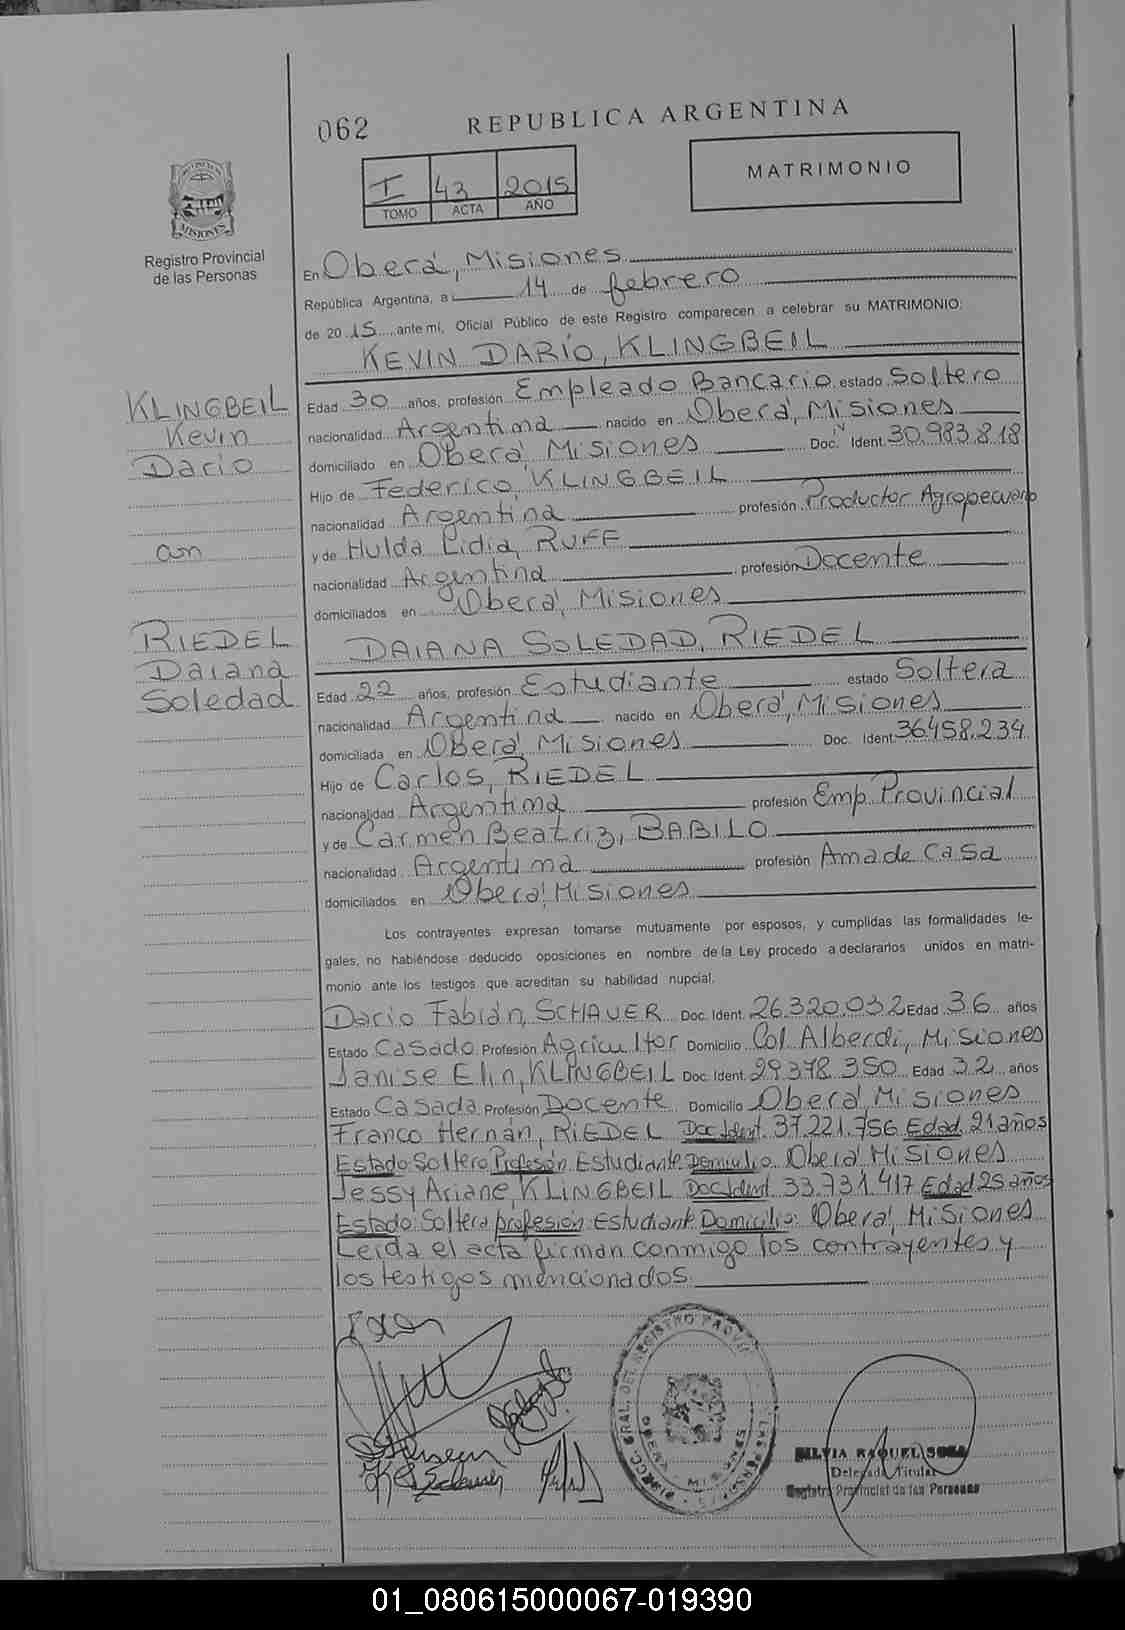 062
REPUBLICA ARGENTINA
I 43 2015
TOMO ACTA AÑO
MATRIMONIO
MISIONES
Registro Provincial
de las Personas
En Oberá, Misiones
República Argentina, a 14 de febrero
de 2015 ante mí, Oficial Público de este Registro comparecen a celebrar su MATRIMONIO:
KEVIN DARÍO, KLINGBEIL
KLINGBEIL
Kevin
Dario
con
RIEDEL
Daiana
Soledad
Edad 30 años, profesión Empleado Bancario estado Soltero
nacionalidad Argentina nacido en Oberá, Misiones
domiciliado en Oberá, Misiones Doc. Ident. 30.983.818
Hijo de Federico, KLINGBEIL
nacionalidad Argentina profesión Productor Agropecuario
y de Hulda Lidia, RUFF
nacionalidad Argentina profesión Docente
domiciliados en Oberá, Misiones
DAIANA SOLEDAD, RIEDEL
Edad 22 años, profesión Estudiante estado Soltera
nacionalidad Argentina nacido en Oberá, Misiones
domiciliada en Oberá, Misiones Doc. Ident. 36.458.234
Hijo de Carlos, RIEDEL
nacionalidad Argentina profesión Emp. Provincial
y de Carmen Beatriz, BABILO
nacionalidad Argentina profesión Ama de Casa
domiciliados en Oberá, Misiones
Los contrayentes expresan tomarse mutuamente por esposos, y cumplidas las formalidades le-
gales, no habiéndose deducido oposiciones en nombre de la Ley procedo a declararlos unidos en matri-
monio ante los testigos que acreditan su habilidad nupcial.
Dario Fabián, SCHAUER Doc. Ident. 26.320.032 Edad 36 años
Estado Casado Profesión Agricultor Domicilio Col. Alberdi, Misiones
Janise Elin, KLINGBEIL Doc. Ident. 29.378.350 Edad 32 años
Estado Casada Profesión Docente Domicilio Oberá Misiones
Franco Hernán, RIEDEL Doc Ident. 37.221.756 Edad 21 años
Estado: Soltero Profesión Estudiante Domicilio Oberá Misiones
Jessy Ariane, KLINGBEIL Doc Ident. 33.731.417 Edad 25 años
Estado: Soltera profesión: Estudiante Domicilio: Oberá, Misiones
Leída el acta firman conmigo los contrayentes y
los testigos mencionados.
SILVIA RAQUEL SOSA
Delegada Titular
Registro Provincial de las Personas
01_080615000067-019390